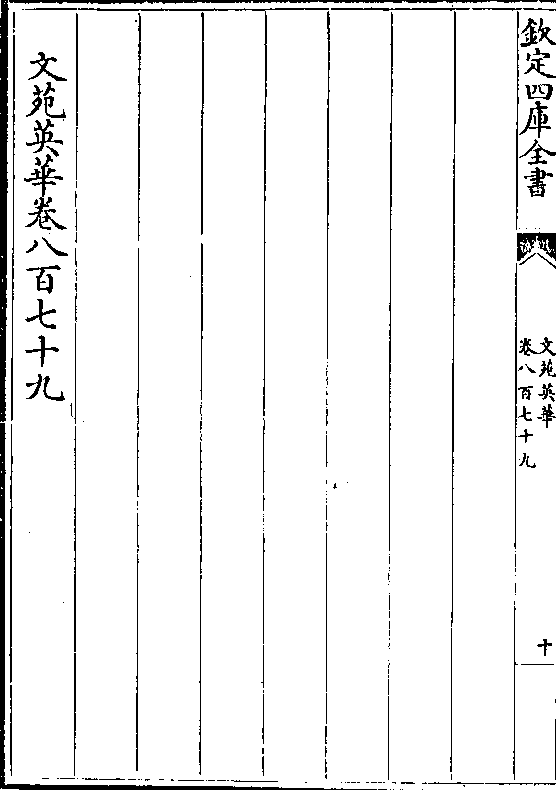 欽定四庫全書
文苑英華
卷八百七十九
十
文苑英華卷八百七十九